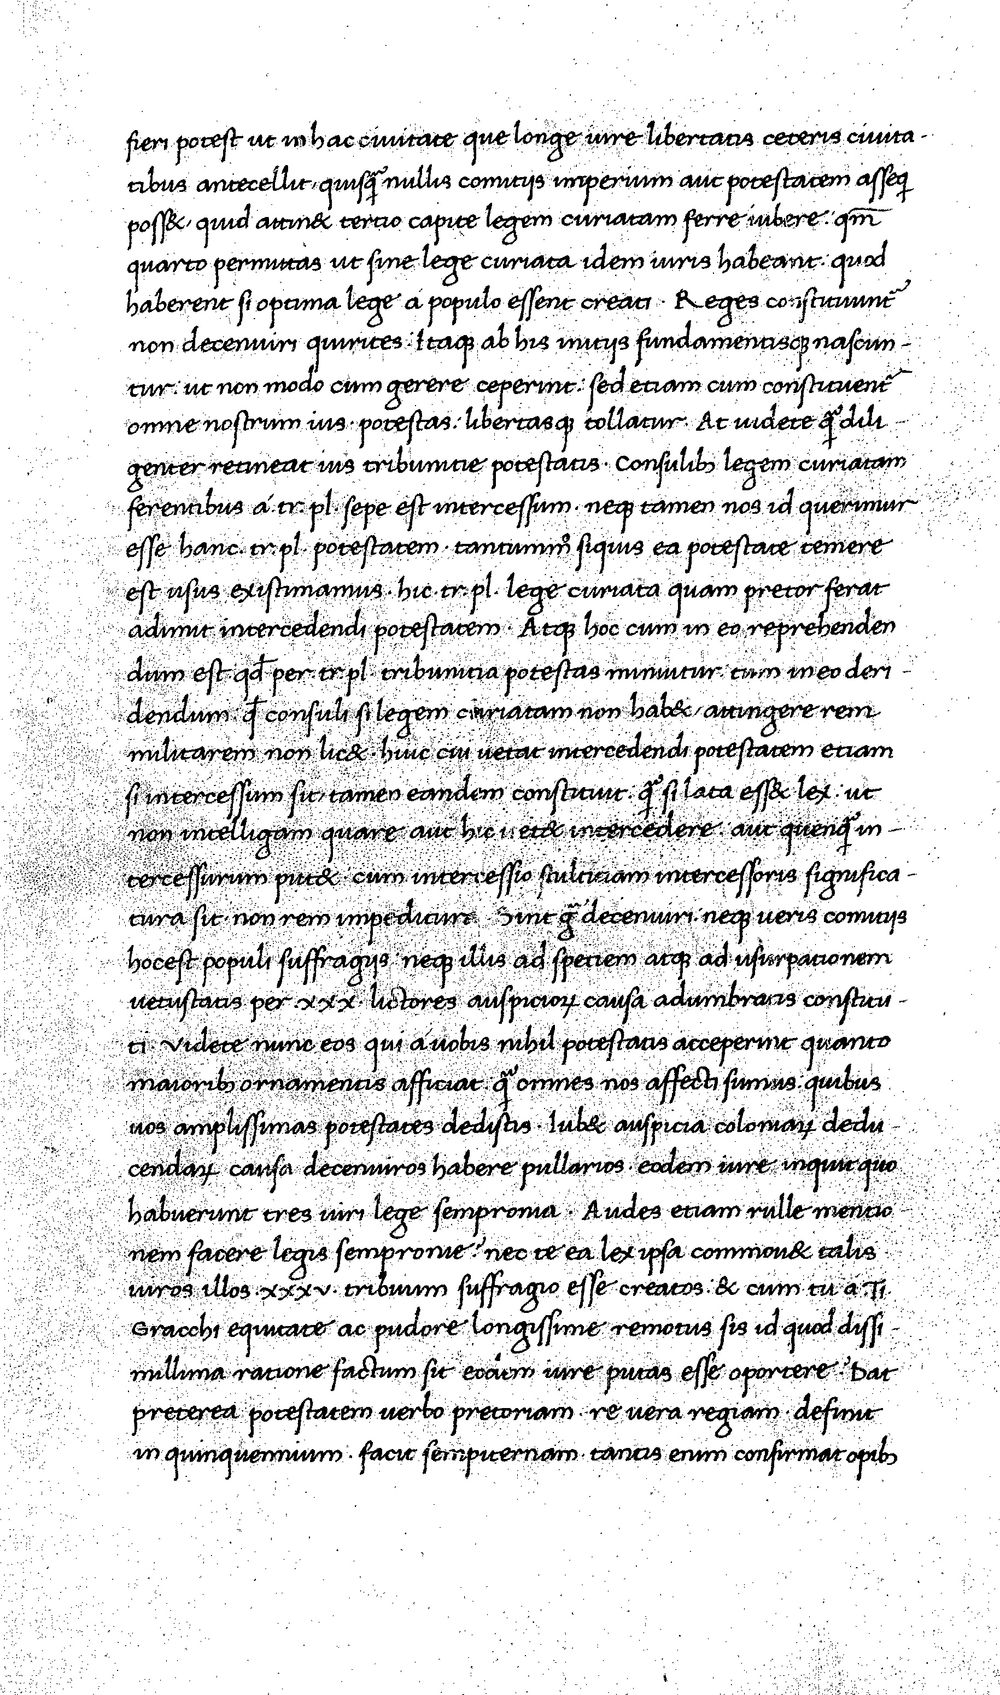 fieri potest ut in hac ciuitate que longe iure libertatis ceteris ciuita-
tibus antecellit, quisq̃ nullis comitijs imperium aut potestatem asseq̃
poss& · quid attin& tertio capite legem curiatam ferre iubere: qm̃
quarto permittas ut sine lege curiata idem iuris habeant: quod
haberent si optima lege a populo essent creati · Reges constituunt᷑
non decemuiri quirites: Itaq; ab his initijs fundamentisq; nascun-
tur: ut non modo cum gerere ceperint: sed etiam cum constituent᷑
omne nostrum ius · potestas: libertasq; tollatur: At uidete q̃ dili-
genter retineat ius tribunitie potestatis · Consulib; legem curiatam
ferentibus á tr: pl: sepe est intercessum · neq; tamen nos id querimur
esse hanc · tr: pl: potestatem · tantummº siquis ea potestate temere
est usus existimamus · hic · tr: pl · lege curiata quam pretor ferat
adimit intercedendi potestatem · Atq; hoc cum in eo reprehenden
dum est qđ per tr: pl: tribunitia potestas minuitur: tum in eo deri-
dendum: q̃ consuli si legem curiatam non hab& / attingere rem
militarem non lic& · huic cui uetat intercedendi potestatem etiam
si intercessum sit, tamen eandem constituit: q̃ si lata ess& lex: ut
non intelligam quare aut hic uet& intercedere · aut quenq̃ in-
tercessurum put& · cum intercessio stultitiam intercessoris significa-
tura sit · non rem impeditura Sint g̃ decemuiri neq; ueris comitijs
hoc est populi suffragijs neq; illis ad speciem atq; ad usurpationem
uetustatis per xxx · lictores auspicioꝝ causa adumbratis constitu-
ti · Videte nunc eos qui á uobis nihil potestatis acceperint quanto
maiorib; ornamentis afficiat · q̃ omnes nos affecti sumus quibus
uos amplissimas potestates dedistis · Iub& auspicia coloniaꝝ dedu-
cendaꝝ causa decemuiros habere pullarios · eodem iure inquit quo
habuerunt tres uiri lege sempronia · Audes etiam rulle mentio
nem facere legis sempronie? nec te ea lex ipsa commou& talis
uiros illos xxxv · tribuum suffragio esse creatos: & cum tu a Ti
Gracchi equitate ac pudore longissime remotus sis id quod dissi-
millima ratione factum sit eodem iure putas esse oportere? Dat
preterea potestatem uerbo pretoriam · re uera regiam · definit
in quinquennium · facit sempiternam · tantis enim confirmat opib;